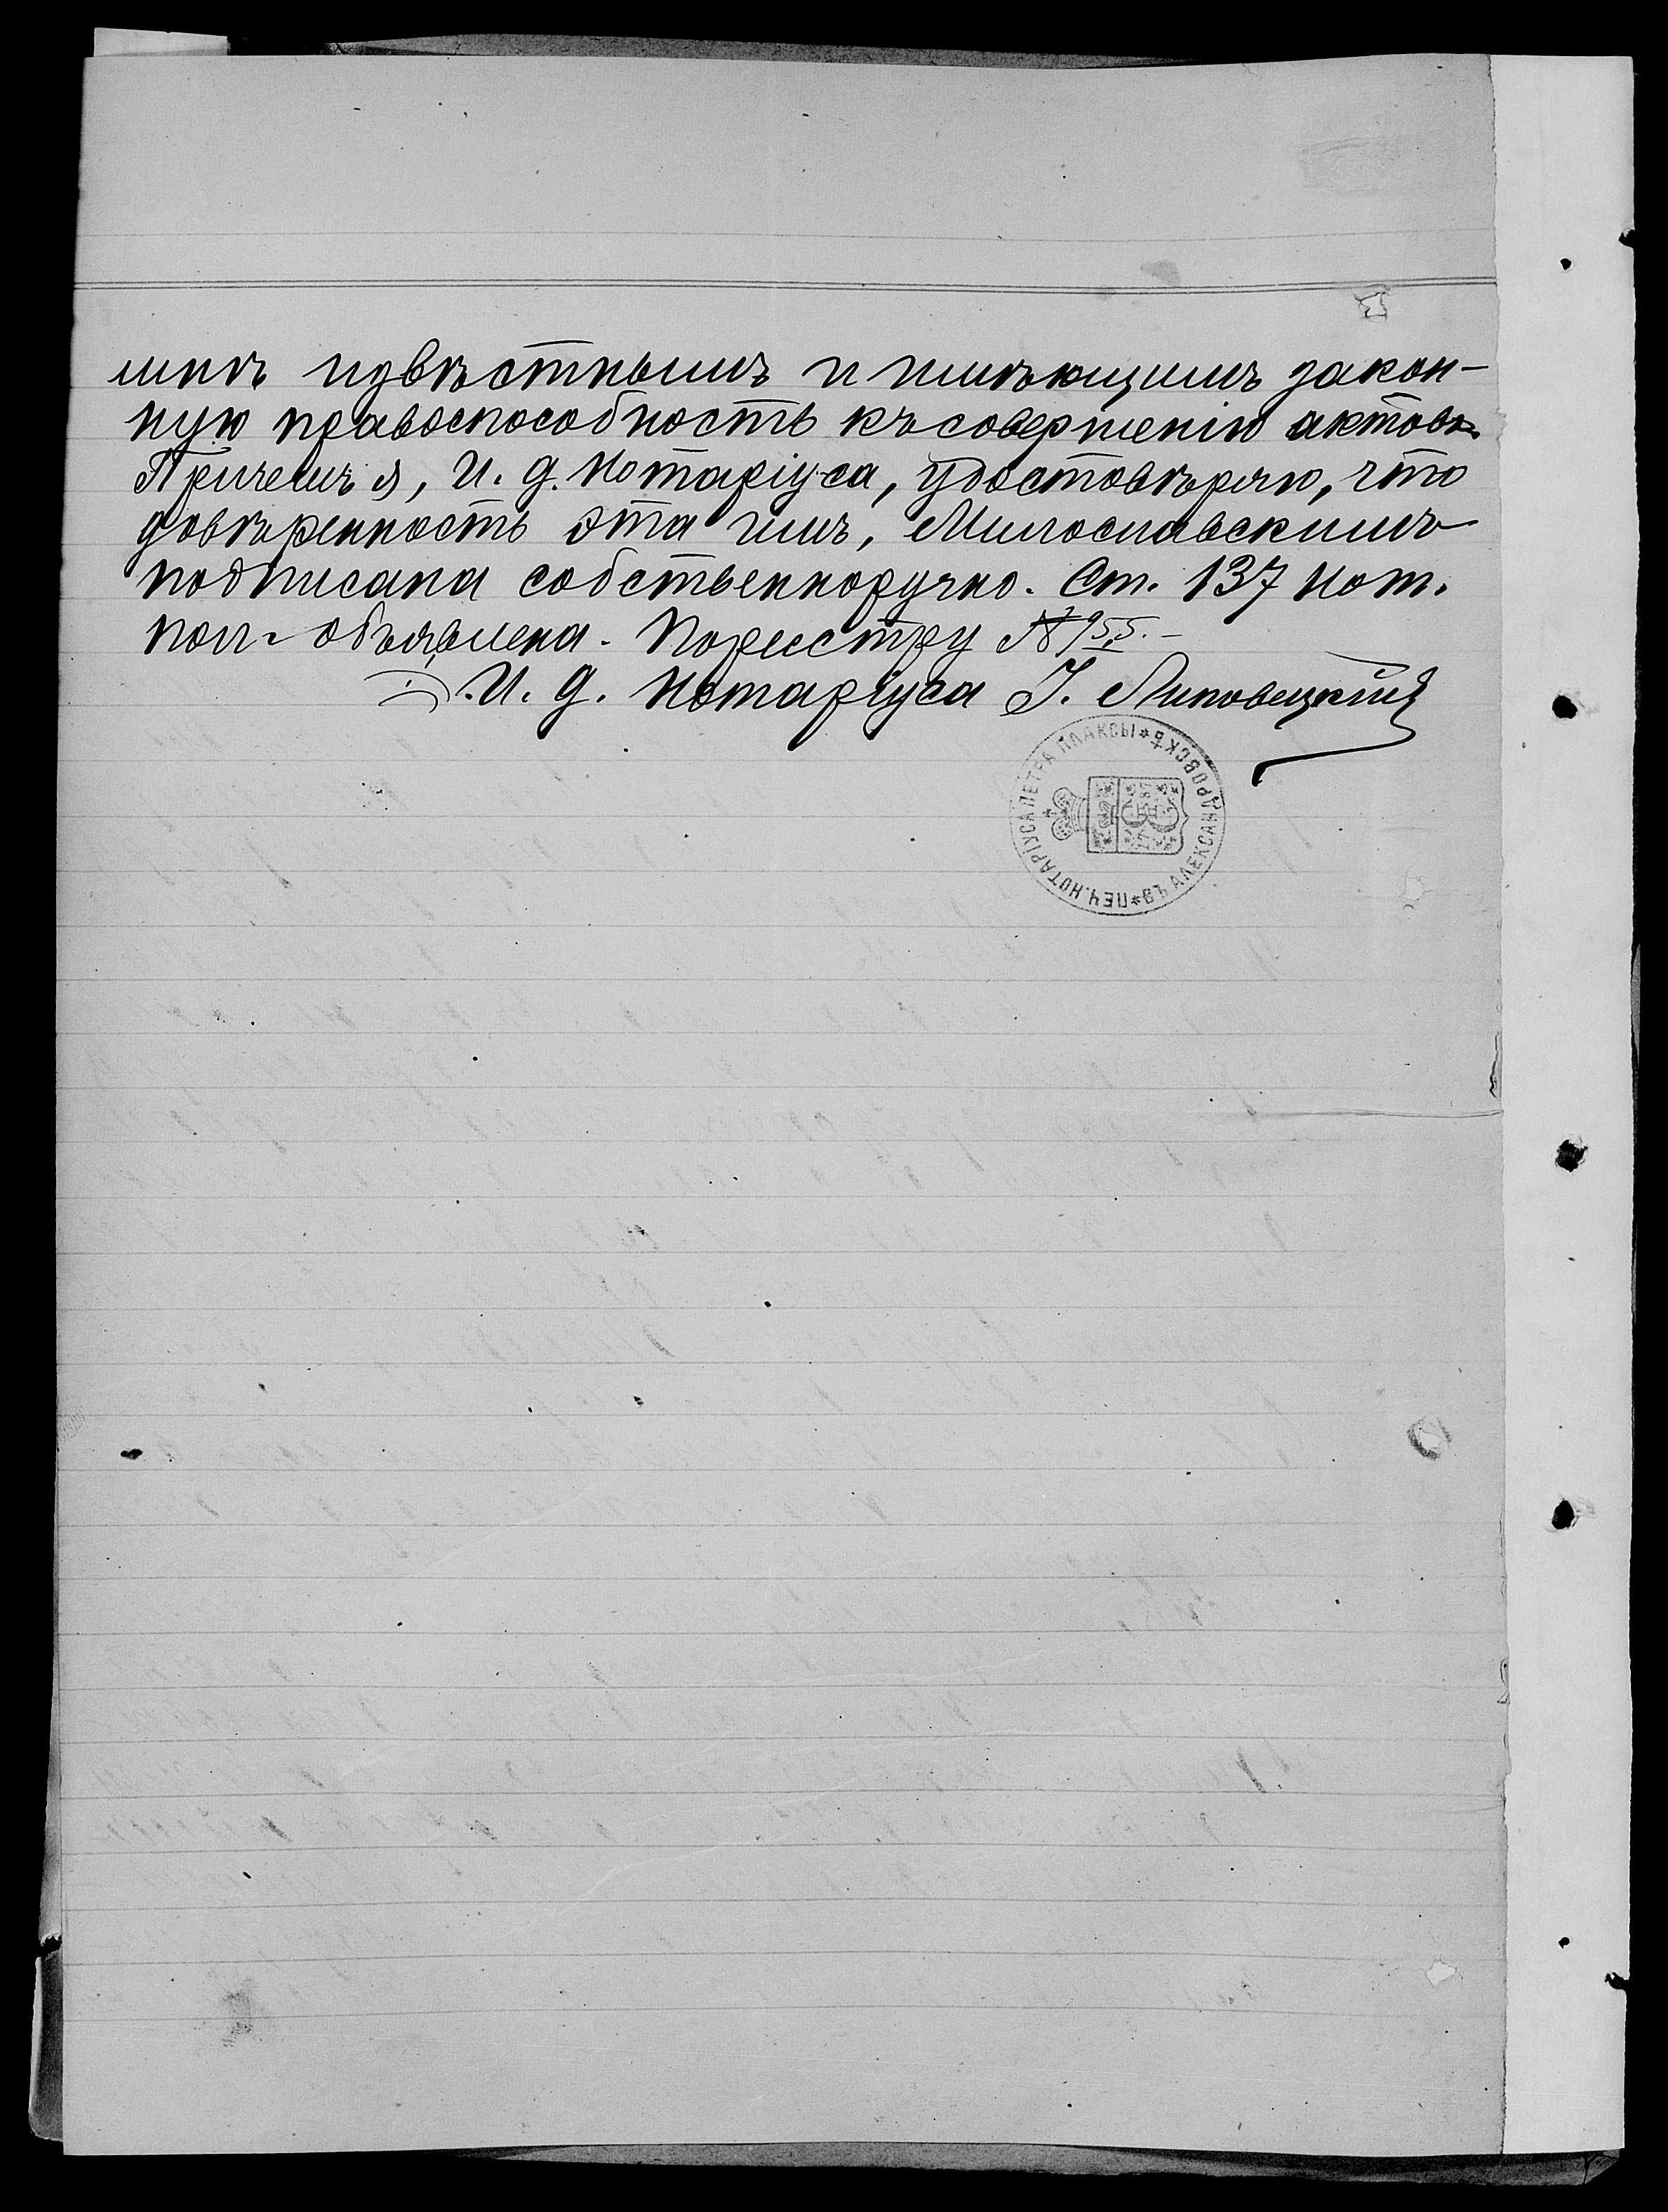 мнѣ извѣстнымъ и имѣющимъ закон-
ную правоспособность къ совершенію актовъ.
Причемъ я, И. д. Нотаріуса, удостовѣряю, что
довѣренность эта имъ, Милославскимъ
подписана собственноручно. Ст. 137 Нот.
пол. объявлена. По реестру № 955.-
И. д. Нотаріуса І. Липовецкий
*ПЕЧ. НОТАРІУСА ПЕТРА ПЛАКСЫ*ВЪ АЛЕКСАНДРОВСКѢ